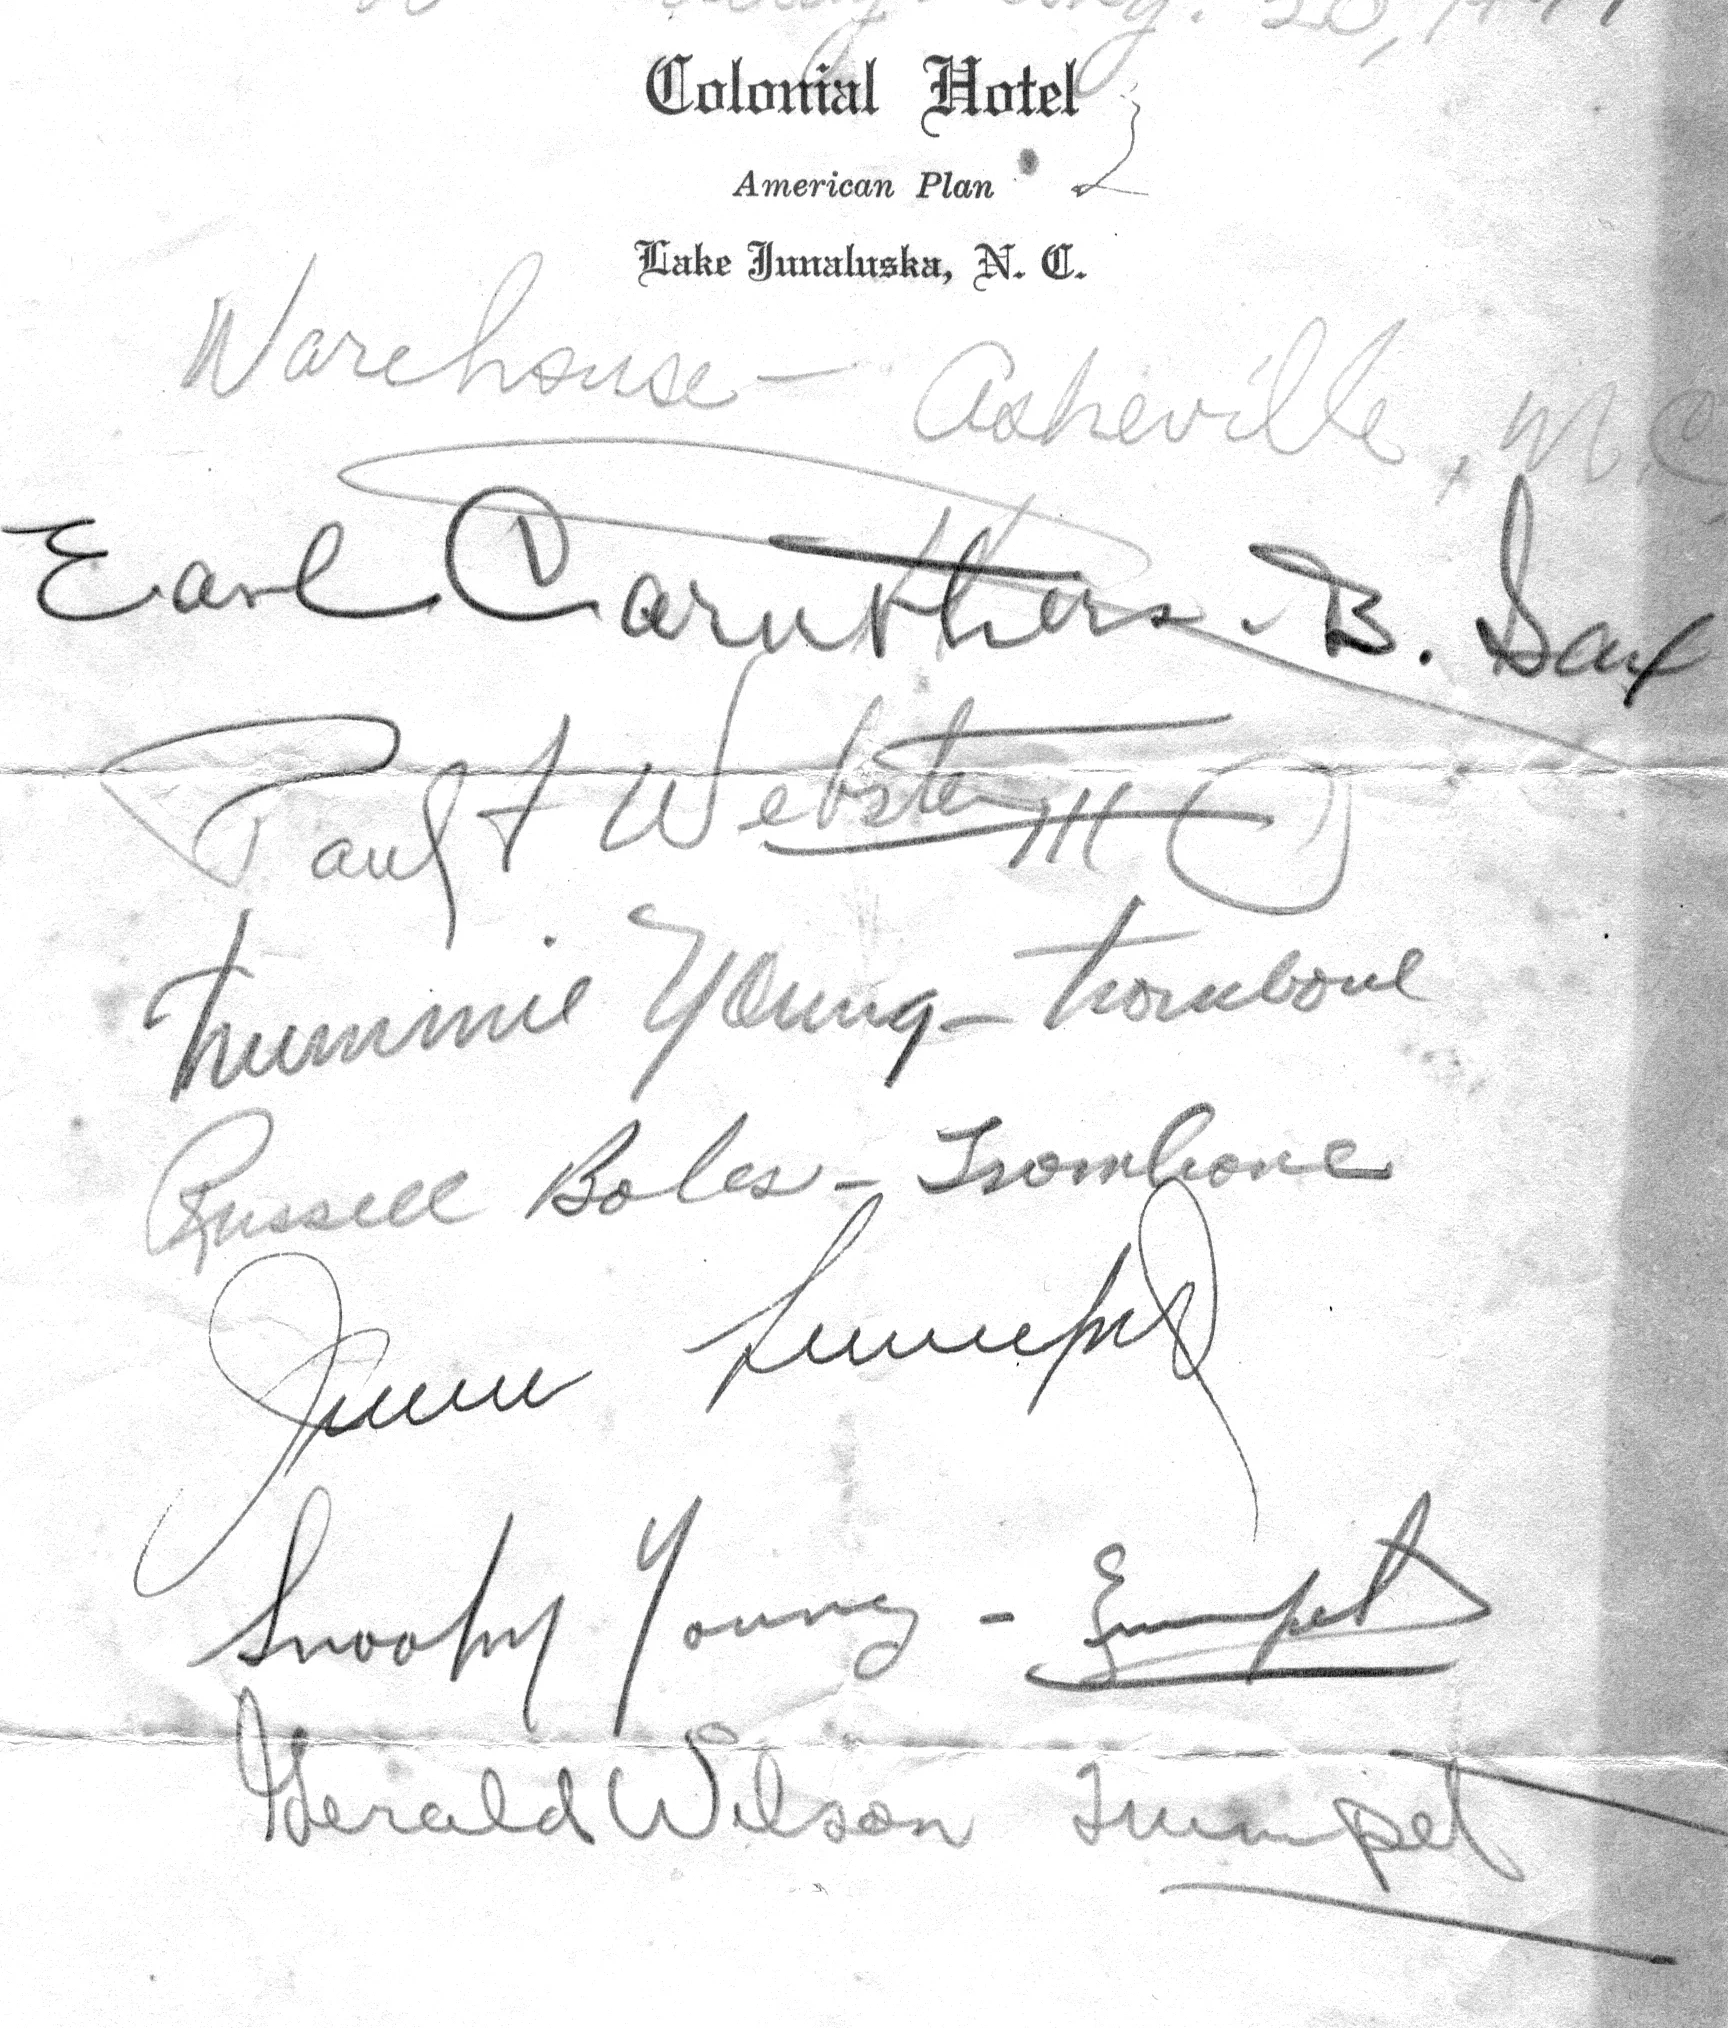 Aug. 20, 
Colonial Hotel
American Plan
Lake Junaluska, N. C.
Warehouse — Asheville, N.C.
Earl Caruthers. B. Sax
Paul F Webster III
Trummie Young - trombone
Russell Boles - Trombone
Jimmie Lunceford
Snooky Young - Trumpet
Gerald Wilson Trumpet